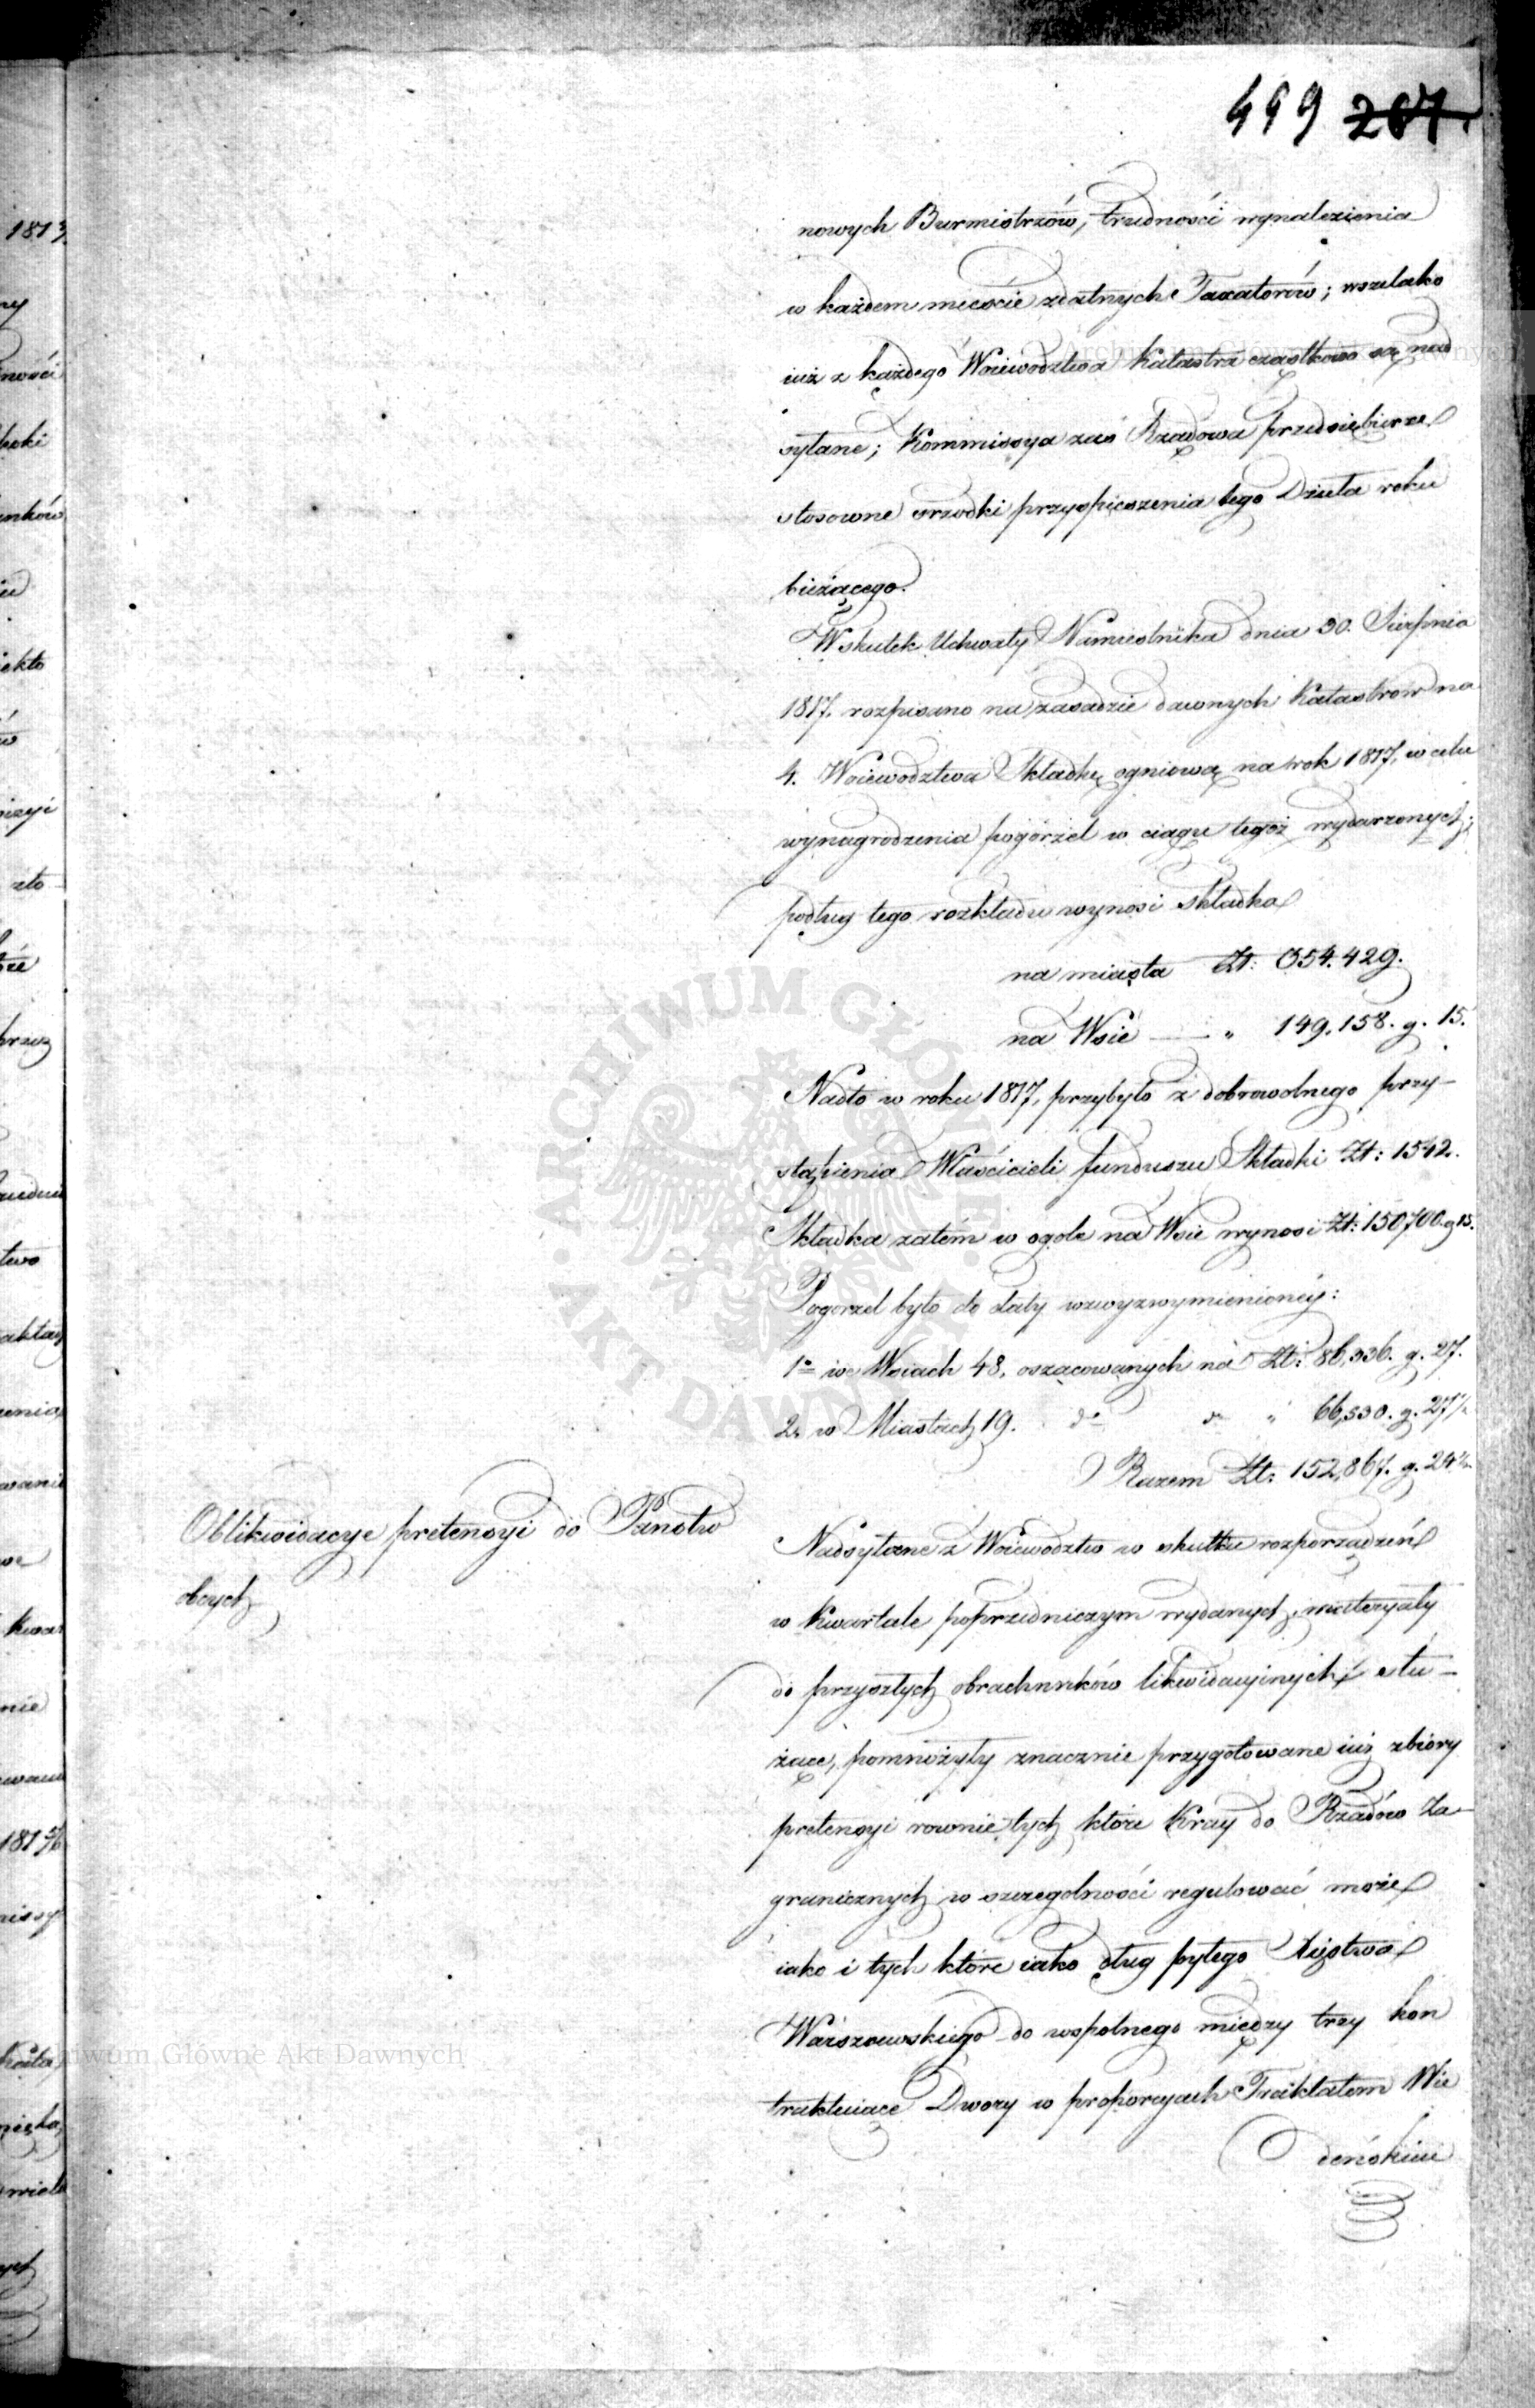 499 267.
nowych Burmistrzów, trudności wynalezienia
w każdem mieście zdatnych Taxatorów; wszelako
iuż z każdego Woiewodztwa Katastra cząstkowo są nad
syłane; Kommissya zaś Rządowa przedsiębierze
stosowne srzodki przyspieszenia tego Dzieła roku
bieżącego.
Wskutek Uchwały Namiestnika dnia 30. Sierpnia
1817. rozpisano na zasadzie dawnych Katastrow na
4. Woiewodztwa Składkę ogniową na rok 1817, w celu
wynagrodzenia pogorzel w ciągu tegoż wydarzonych;
podług tego rozkładu wynosi składka
na miasta Zł: 354.429.
na Wsie — „ 149,158. g. 15.
Nadto w roku 1817, przybyło z dobrowolnego przy-
stąpienia Właścicieli funduszu Składki Zł: 1542.
Składka zatém w ogole na Wsie wynosi Zł: 150,700. g 15.
Pogorzel było do daty wzwyzwymienioney:
1o we Wsiach 48, oszacowanych na Zł: 86,336. g. 27.
2. w Miastach 19. do do „ 66,530. g. 27½
Razem Zł: 152,867. g. 24½
Oblikwidacye pretensyi do Panstw
obcych
Nadsyłane z Woiewodztw w skutku rozporządzeń
w Kwartale poprzedniczym wydanych, materyały
do przyszłych obrachunków likwidacyinych słu-
żące, pomnożyły znacznie przygotowane iuż zbiory
pretensyi rownie tych które Kray do Rządów Za-
granicznych w szczegolności regulować może
iako i tych które iako dług byłego Xięstwa
Warszawskiego do wspolnego między trzy kon
traktuiące Dwory w proporcyach Traktatem Wie
deńskim